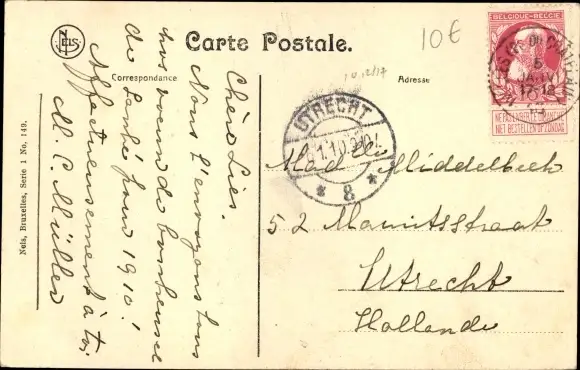 NELS
Carte Postale.
10€
Correspondance
Adresse
Nels, Bruxelles, Serie 1 No. 149.
Chère Lies.
Nous t'envoyons tous
nos voeux de bonheur et
de santé pour 1910!
Affectueusement à toi
M. C. Müller
BELGIQUE-BELGIE
NE PAS LIVRER LE DIMANCHE
NIET BESTELLEN OP ZONDAG
UTRECHT
8
Middelbeek
52 Mauritsstraat
Utrecht
Hollande